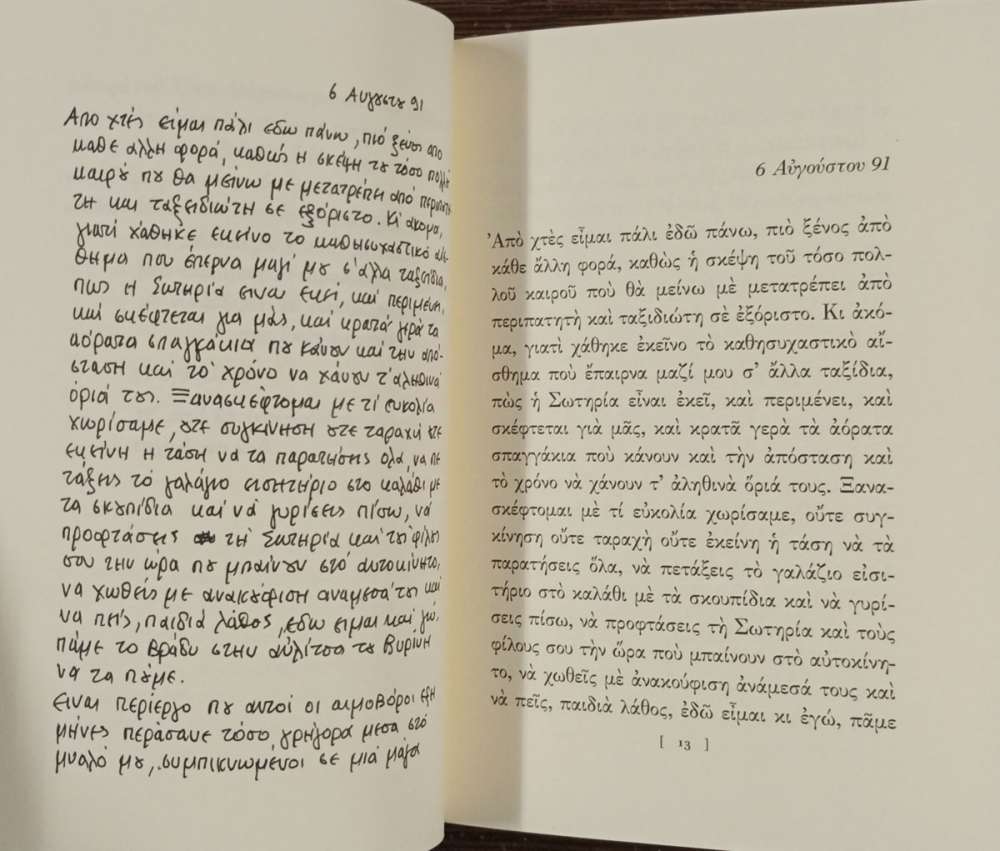 6 Αυγουστου 91
Απο χτές είμαι πάλι εδω πάνω, πιό ξένος απο
καθε άλλη φορά, καθώς η σκέψη του τόσο πολλού
καιρού που θα μείνω με μετατρέπει από περιπατη
τη και ταξειδιώτη σε εξόριστο. Κι ακομα,
γιατί χάθηκε εκείνο το καθησυχαστικό αίσ
θημα που έπερνα μαζί μου σ' άλλα ταξείδια,
πως η Σωτηρία ειναι εκεί, και περιμένει,
και σκέφτεται για μάς, και κρατά γερά τα
αόρατα σπαγγάκια που κάνουν και την από-
σταση και το χρόνο να χάνουν τ' αληθινά
όριά τους. Ξανασκέφτομαι με τί ευκολία
χωρίσαμε, ούτε συγκίνηση ούτε ταραχή ούτε
εκείνη η τάση να τα παρατήσεις όλα, να πε
τάξεις το γαλάζιο εισητήριο στο καλάθι με
τα σκουπίδια και να γυρίσεις πίσω, να
προφτάσεις τη Σωτηρία και τους φίλους
σου την ώρα που μπαίνουν στο αυτοκίνητο,
να χωθείς με ανακούφιση αναμεσά τους και
να πείς, παιδιά λάθος, εδω ειμαι και γώ,
πάμε το βράδυ στην αυλίτσα του Βυρίνη
να τα πούμε.
Ειναι περίεργο που αυτοί οι αιμοβόροι εξη
μήνες περάσανε τόσο γρήγορα μεσα στό
μυαλό μου, συμπικνωμένοι σε μιά μάζα
6 Αὐγούστου 91
Ἀπὸ χτὲς εἶμαι πάλι ἐδῶ πάνω, πιὸ ξένος ἀπὸ
κάθε ἄλλη φορά, καθὼς ἡ σκέψη τοῦ τόσο πολ-
λοῦ καιροῦ ποὺ θὰ μείνω μὲ μετατρέπει ἀπὸ
περιπατητὴ καὶ ταξιδιώτη σὲ ἐξόριστο. Κι ἀκό-
μα, γιατὶ χάθηκε ἐκεῖνο τὸ καθησυχαστικὸ αἴ-
σθημα ποὺ ἔπαιρνα μαζί μου σ' ἄλλα ταξίδια,
πὼς ἡ Σωτηρία εἶναι ἐκεῖ, καὶ περιμένει, καὶ
σκέφτεται γιὰ μᾶς, καὶ κρατᾶ γερὰ τὰ ἀόρατα
σπαγγάκια ποὺ κάνουν καὶ τὴν ἀπόσταση καὶ
τὸ χρόνο νὰ χάνουν τ' ἀληθινὰ ὅριά τους. Ξανα-
σκέφτομαι μὲ τί εὐκολία χωρίσαμε, οὔτε συγ-
κίνηση οὔτε ταραχὴ οὔτε ἐκείνη ἡ τάση νὰ τὰ
παρατήσεις ὅλα, νὰ πετάξεις τὸ γαλάζιο εἰσι-
τήριο στὸ καλάθι μὲ τὰ σκουπίδια καὶ νὰ γυρί-
σεις πίσω, νὰ προφτάσεις τὴ Σωτηρία καὶ τοὺς
φίλους σου τὴν ὥρα ποὺ μπαίνουν στὸ αὐτοκίνη-
το, νὰ χωθεῖς μὲ ἀνακούφιση ἀνάμεσά τους καὶ
νὰ πεῖς, παιδιὰ λάθος, ἐδῶ εἶμαι κι ἐγώ, πᾶμε
[ 13 ]